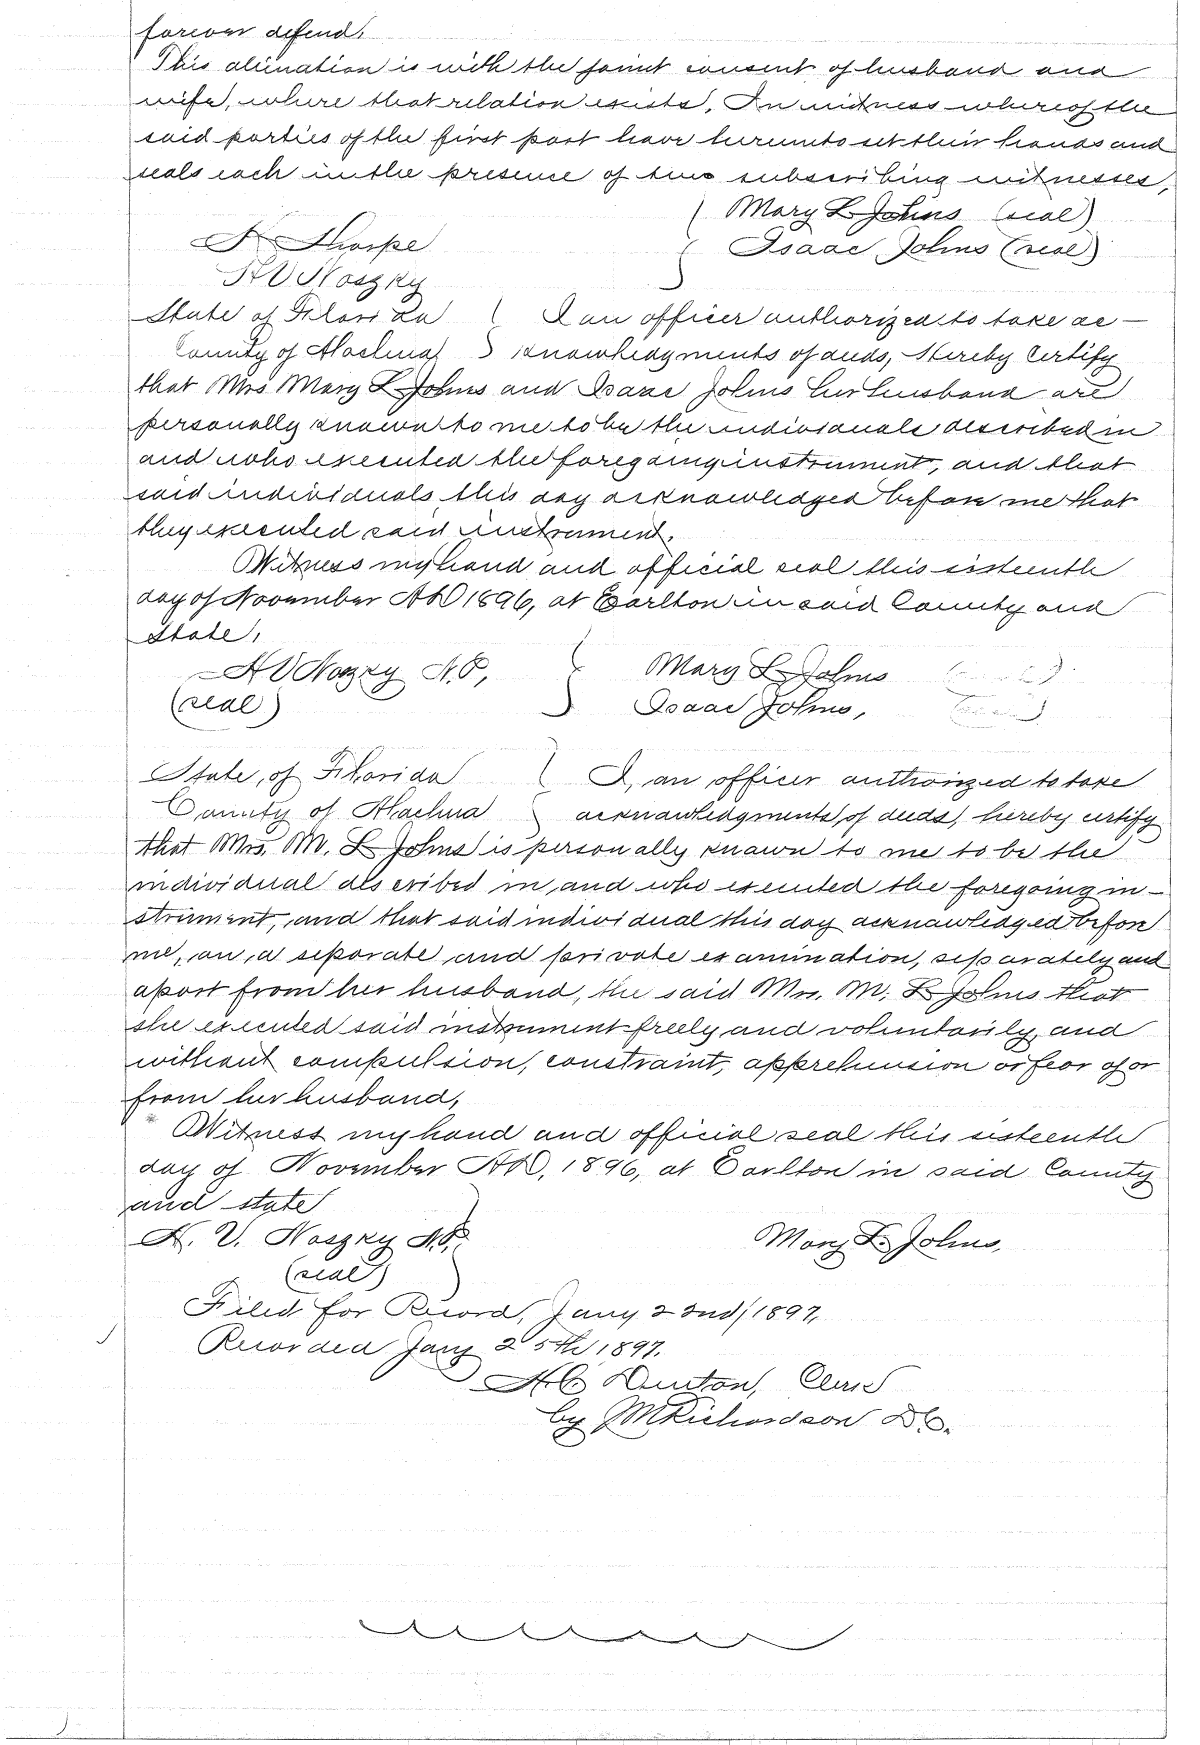 forever defend.
This alienation is with the joint consent of husband and
wife, where that relation exists. In witness whereof the
said parties of the first part have hereunto set their hands and
seals each in the presence of two subscribing witnesses,
Mary L Johns (seal)
Thorpe Isaac Johns (seal)
State of Florida I an officer authorized to take ac-
County of Alachua knowledgments of deeds, hereby certify
that Mrs Mary L Johns and Isaac Johns her husband are
personally known to me to be the individuals described in
and who executed the foregoing instrument, and that
said individuals this day acknowledged before me that
they executed said instrument.
Witness my hand and official seal this sixteenth
day of November AD 1896, at Earlton in said County and
State,
N.P, Mary L Johns
(seal) Isaac Johns,
State, of Florida I, an officer authorized to take
County of Alachua acknowledgments, of deeds, hereby certify
that Mrs. M. L Johns is personally known to me to be the
individual described in, and who executed the foregoing in-
strument, and that said individual this day acknowledged before
me, on, a separate and private examination, separately and
apart from her husband, the said Mrs. M. L Johns that
she executed said instrument freely and voluntarily, and
without compulsion, constraint, apprehension or fear of or
from her husband,
Witness my hand and official seal this sixteenth
day of November AD, 1896, at Earlton in said County
and state
V. N.P. Mary L. Johns,
(seal)
Filed for Record, Jany 22nd/1897,
Recorded Jany 25th 1897.
Denton, Clerk
by JMRichardson D.C.